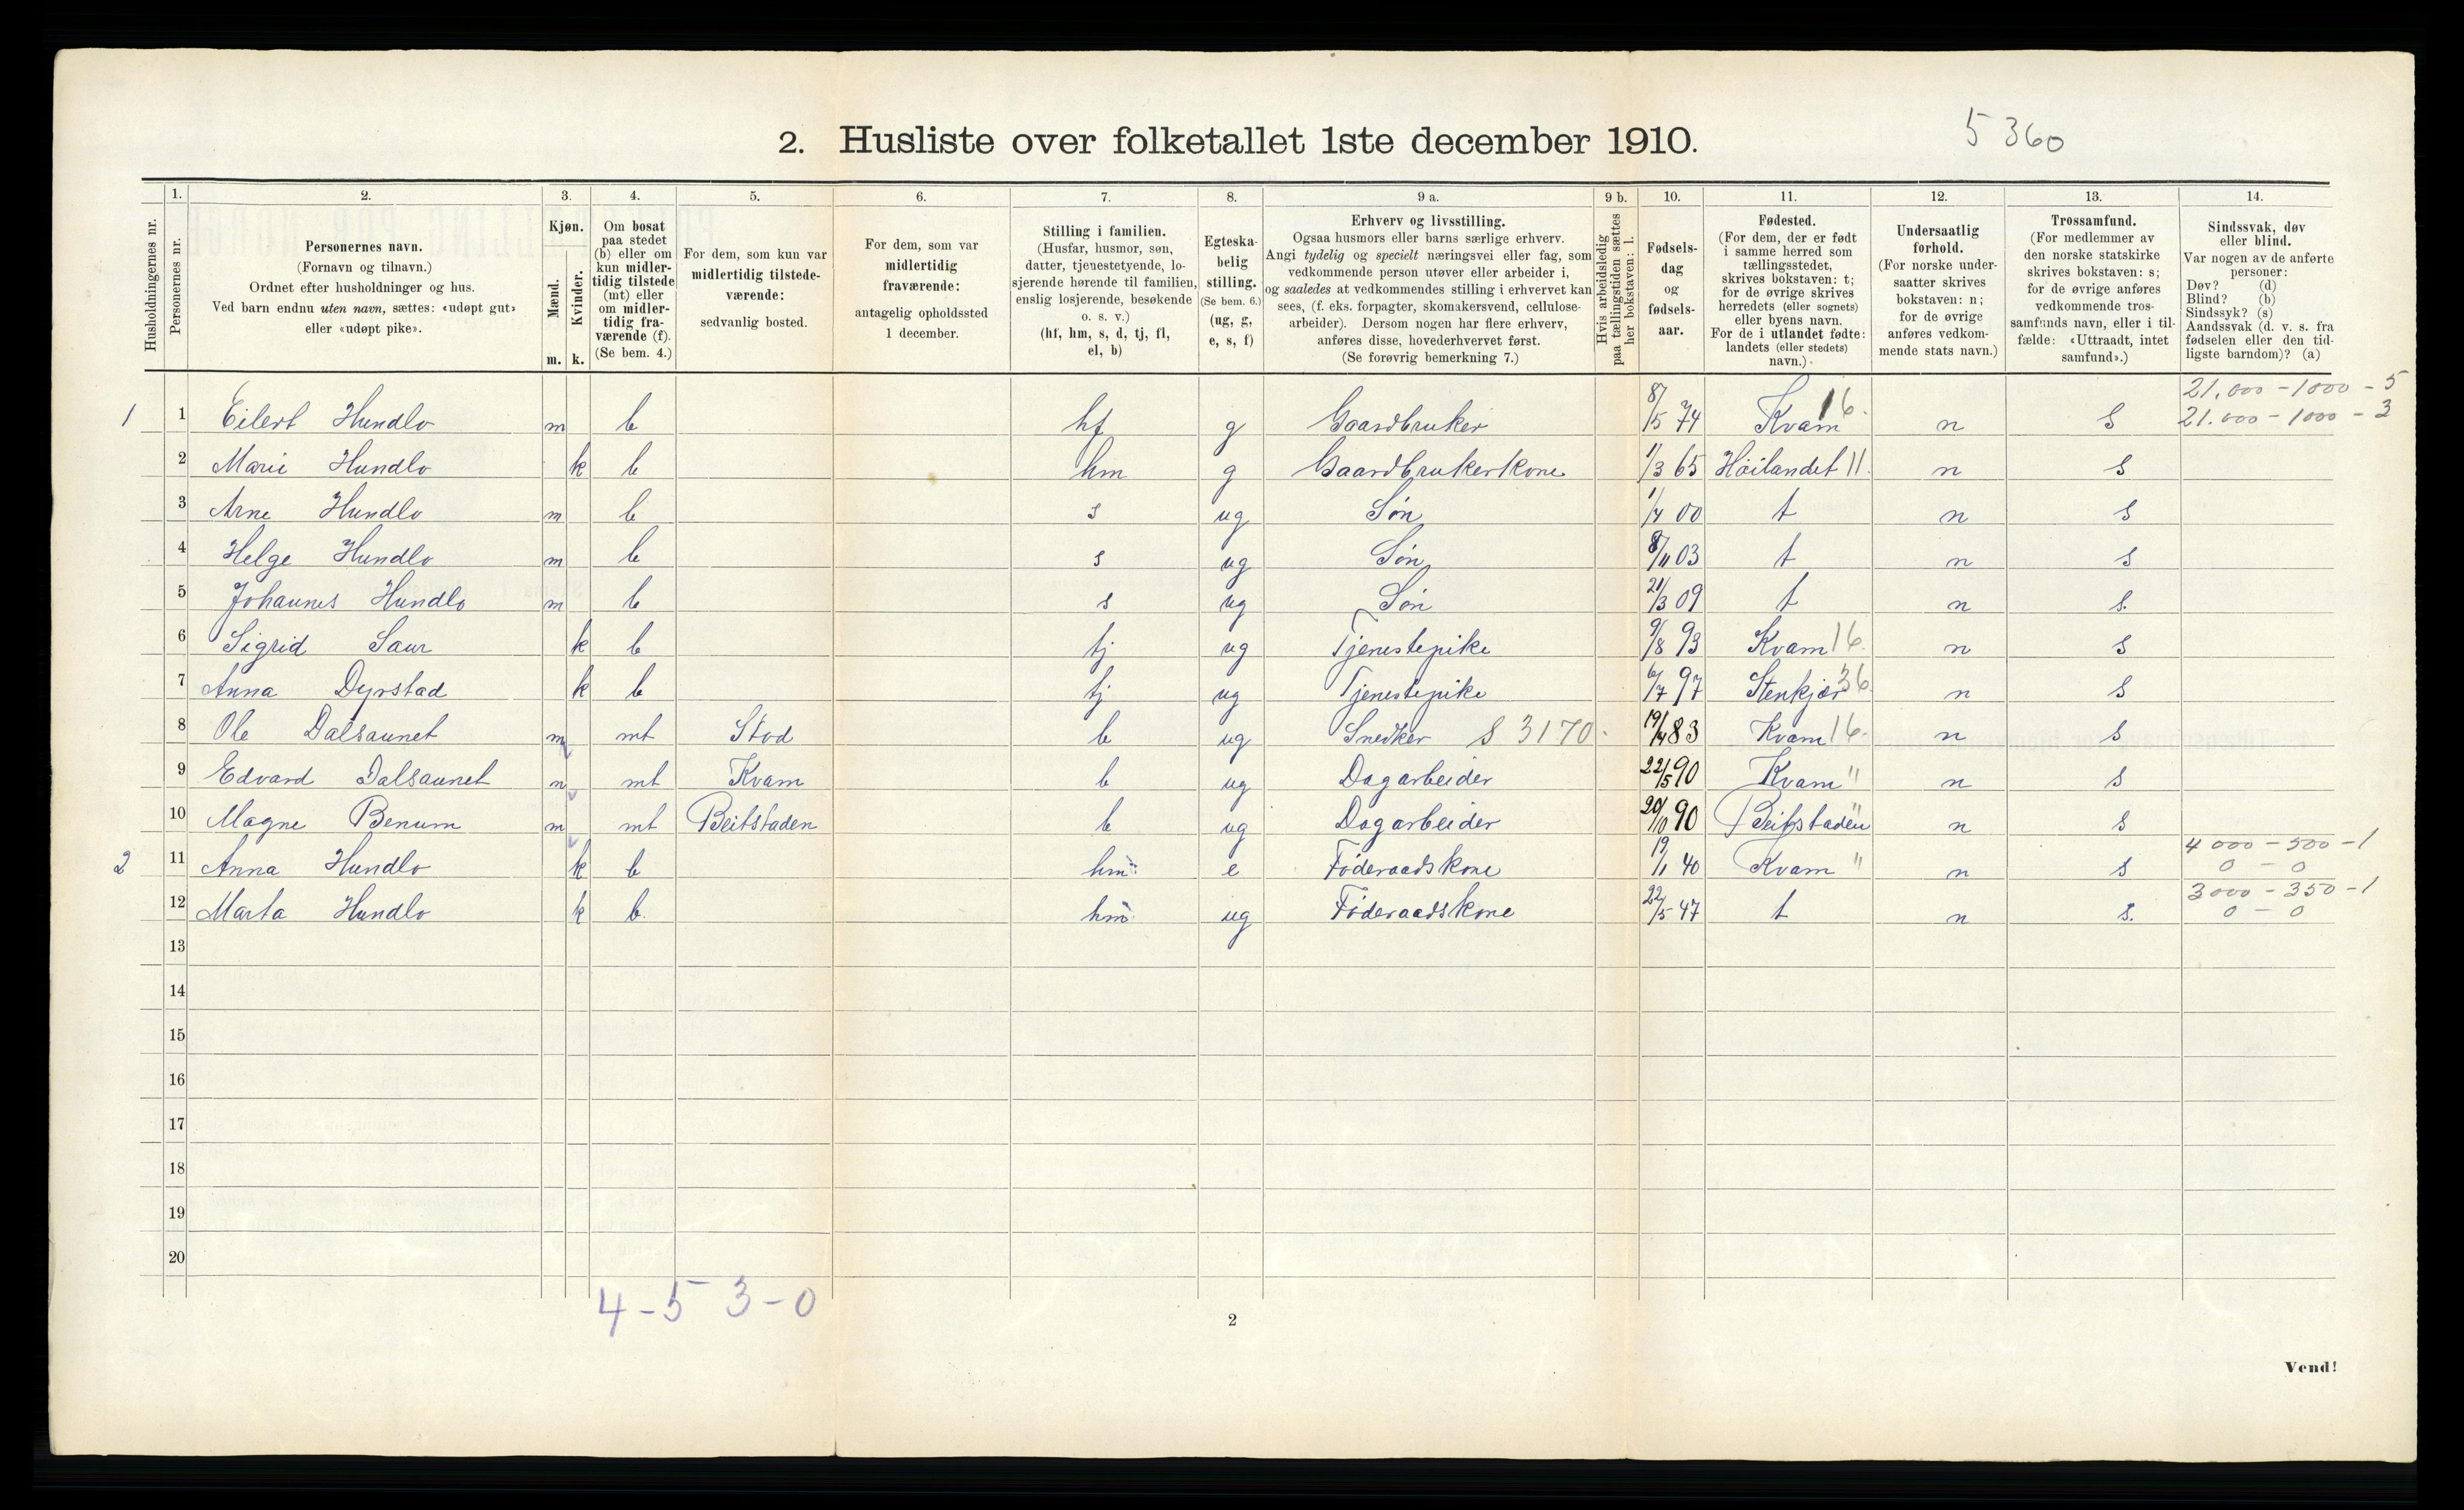 5360
2. Husliste over folketallet 1ste december 1910.
Husholdningernes nr.
1. Personernes nr.
2. Personernes navn.
(Fornavn og tilnavn.)
Ordnet efter husholdninger og hus.
Ved barn endnu uten navn, sættes: «udøpt gut»
eller «udøpt pike».
3. Kjøn.
Mænd. m.
Kvinder. k.
4. Om bosat
paa stedet
(b) eller om
kun midler-
tidig tilstede
(mt) eller
om midler-
tidig fra-
værende (f).
(Se bem. 4.)
5. For dem, som kun var
midlertidig tilstede-
værende:
sedvanlig bosted.
6. For dem, som var
midlertidig
fraværende:
antagelig opholdssted
1 december.
7. Stilling i familien.
(Husfar, husmor, søn,
datter, tjenestetyende, lo-
sjerende hørende til familien,
enslig losjerende, besøkende
o. s. v.)
(hf, hm, s, d, tj, fl,
el, b)
8. Egteska-
belig
stilling.
(Se bem. 6.)
(ug, g,
e, s, f)
9 a. Erhverv og livsstilling.
Ogsaa husmors eller barns særlige erhverv.
Angi tydelig og specielt næringsvei eller fag, som
vedkommende person utøver eller arbeider i,
og saaledes at vedkommendes stilling i erhvervet kan
sees, (f. eks. forpagter, skomakersvend, cellulose-
arbeider). Dersom nogen har flere erhverv,
anføres disse, hovederhvervet først.
(Se forøvrig bemerkning 7.)
9 b. Hvis arbeidsledig
paa tællingstiden sættes
her bokstaven: l.
10. Fødsels-
dag
og
fødsels-
aar.
11. Fødested.
(For dem, der er født
i samme herred som
tællingsstedet,
skrives bokstaven: t;
for de øvrige skrives
herredets (eller sognets)
eller byens navn.
For de i utlandet fødte:
landets (eller stedets)
navn.)
12. Undersaatlig
forhold.
(For norske under-
saatter skrives
bokstaven: n;
for de øvrige
anføres vedkom-
mende stats navn.)
13. Trossamfund.
(For medlemmer av
den norske statskirke
skrives bokstaven: s;
for de øvrige anføres
vedkommende tros-
samfunds navn, eller i til-
fælde: «Uttraadt, intet
samfund».)
14. Sindssvak, døv
eller blind.
Var nogen av de anførte
personer:
Døv? (d)
Blind? (b)
Sindssyk? (s)
Aandssvak (d. v. s. fra
fødselen eller den tid-
ligste barndom)? (a)
21.000 - 1000 - 5
1 1 Eilert Hundlo m b hf g Gaardbruker 8/5 74 Kvam 16. n S 21.000 - 1000 - 3
2 Marie Hundlo k b hm g Gaardbrukerkone 1/3 65 Höilandet 11. n s
3 Arne Hundlo m b s ug Søn 1/4 00 t n s
4 Helge Hundlo m b s ug Søn 8/11 03 t n s
5 Johannes Hundlo m b s ug Søn 21/3 09 t n s.
6 Sigrid Saur k b tj ug Tjenestepike 9/8 93 Kvam 16. n s
7 Anna Dyrstad k b tj ug Tjenestepike 6/7 97 Stenkjær 36 n s
8 Ole Dalsaunet m mt Stod b ug Snedker S 3170. 19/4 83 Kvam 16. n s
9 Edvard Dalsaunet m mt Kvam b ug Dagarbeider 22/5 90 Kvam " n s
10 Magne Benum m mt Beitstaden b ug Dagarbeider 20/10 90 Beitstaden " n s
4000 - 500 - 1
2 11 Anna Hundlo k b hm e Føderaadskone 19/1 40 Kvam " n s 0 - 0
3000 - 350 - 1
12 Marta Hundlo k b. hm ug Føderaadskone 22/5 47 t n s. 0 - 0
13
14
15
16
17
18
19
20
4 - 5 3 - 0
2
Vend!